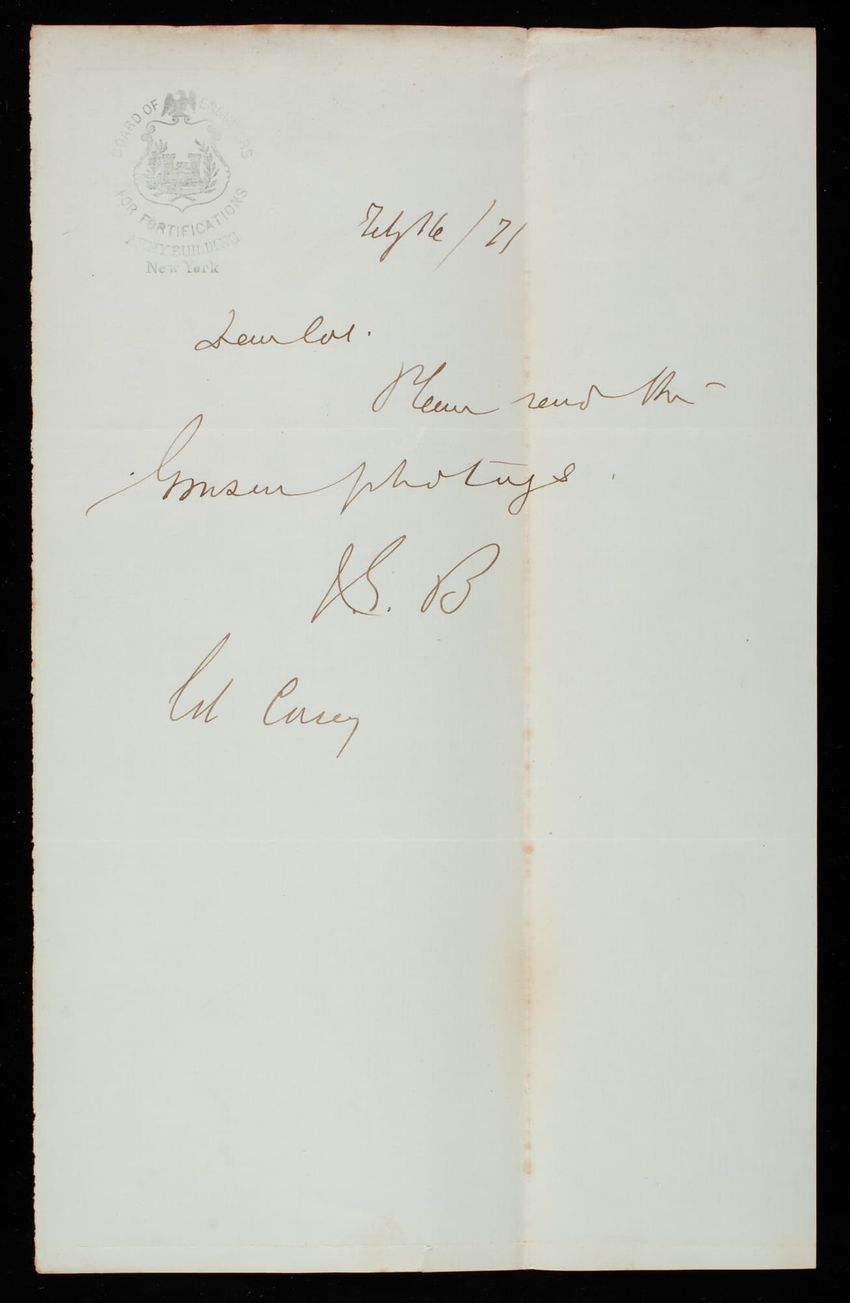 BOARD OF ENGINEERS
FOR FORTIFICATIONS
ARMY BUILDING
New York
Feby 16 / 71
Dear Col.
Please send the
photogs
J.G. B
Col Casey